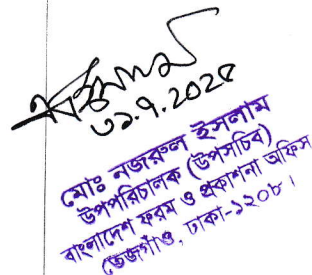 ৩১.৭.২০২৫
মোঃ নজরুল ইসলাম
উপপরিচালক (উপসচিব)
বাংলাদেশ ফরম ও প্রকাশনা অফিস
তেজগাঁও, ঢাকা-১২০৮।